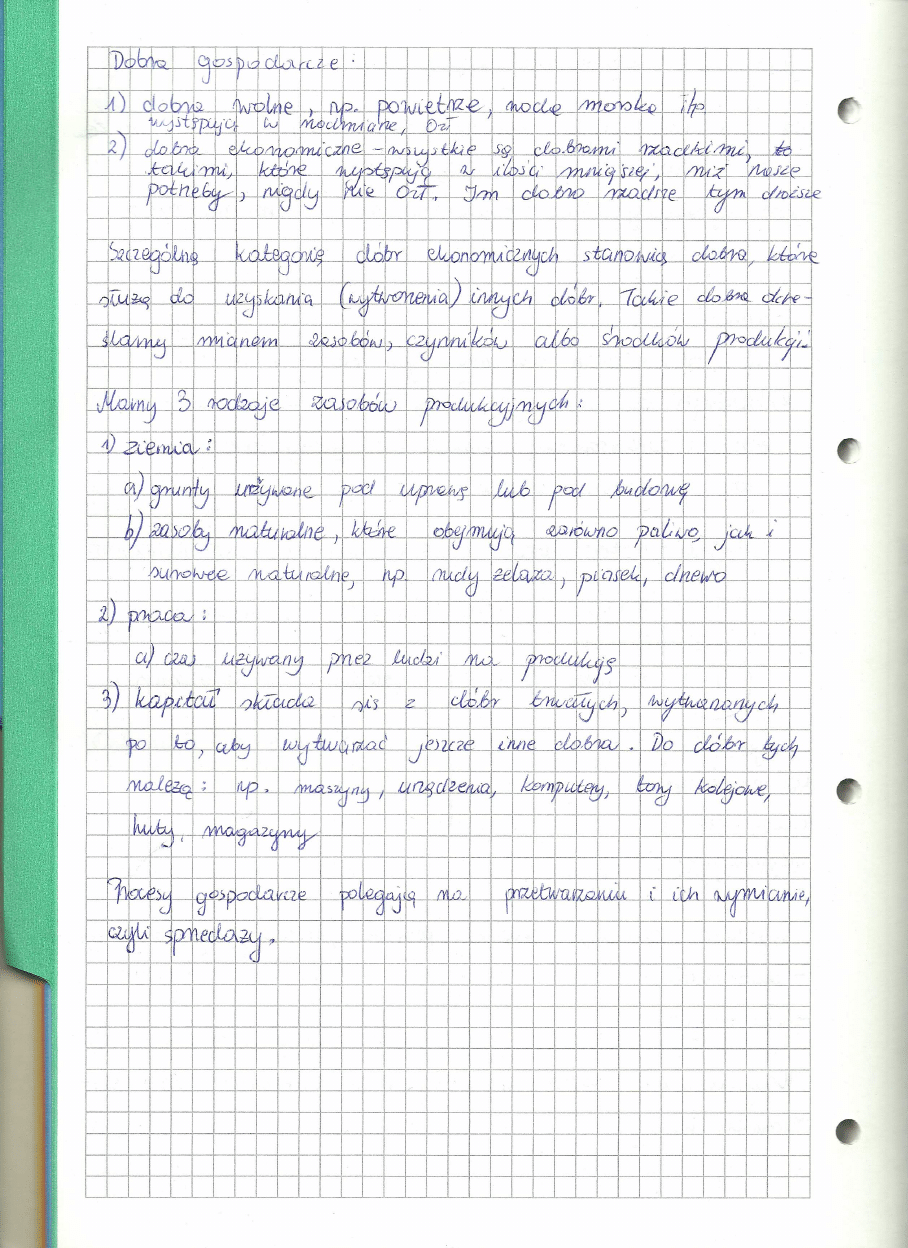 Dobra gospodarcze:
1) dobra wolne, np. powietrze, woda morska itp
występują w nadmiarze, 0zł
2) dobra ekonomiczne - wszystkie są dobrami rzadkimi, to
takimi, które występują w ilości mniejszej, niż nasze
potrzeby, nigdy nie 0zł. Im dobro rzadsze tym droższe
Szczególną kategorię dóbr ekonomicznych stanowią dobra, które
służą do uzyskania (wytworzenia) innych dóbr. Takie dobra okre-
ślamy mianem zasobów, czynników albo środków produkcji.
Mamy 3 rodzaje zasobów produkcyjnych:
1) ziemia:
a) grunty używane pod uprawę lub pod budowę
b) zasoby naturalne, które obejmują zarówno paliwa, jak i
surowce naturalne, np. rudy żelaza, piasek, drewo
2) praca:
a) czas używany przez ludzi na produkcję
3) kapitał składa się z dóbr trwałych, wytwarzanych
po to, aby wytwarzać jeszcze inne dobra. Do dóbr tych
należą: np. maszyny, urządzenia, komputery, tory kolejowe,
huty, magazyny
Procesy gospodarcze polegają na przetwarzaniu i ich wymianie,
czyli sprzedaży.